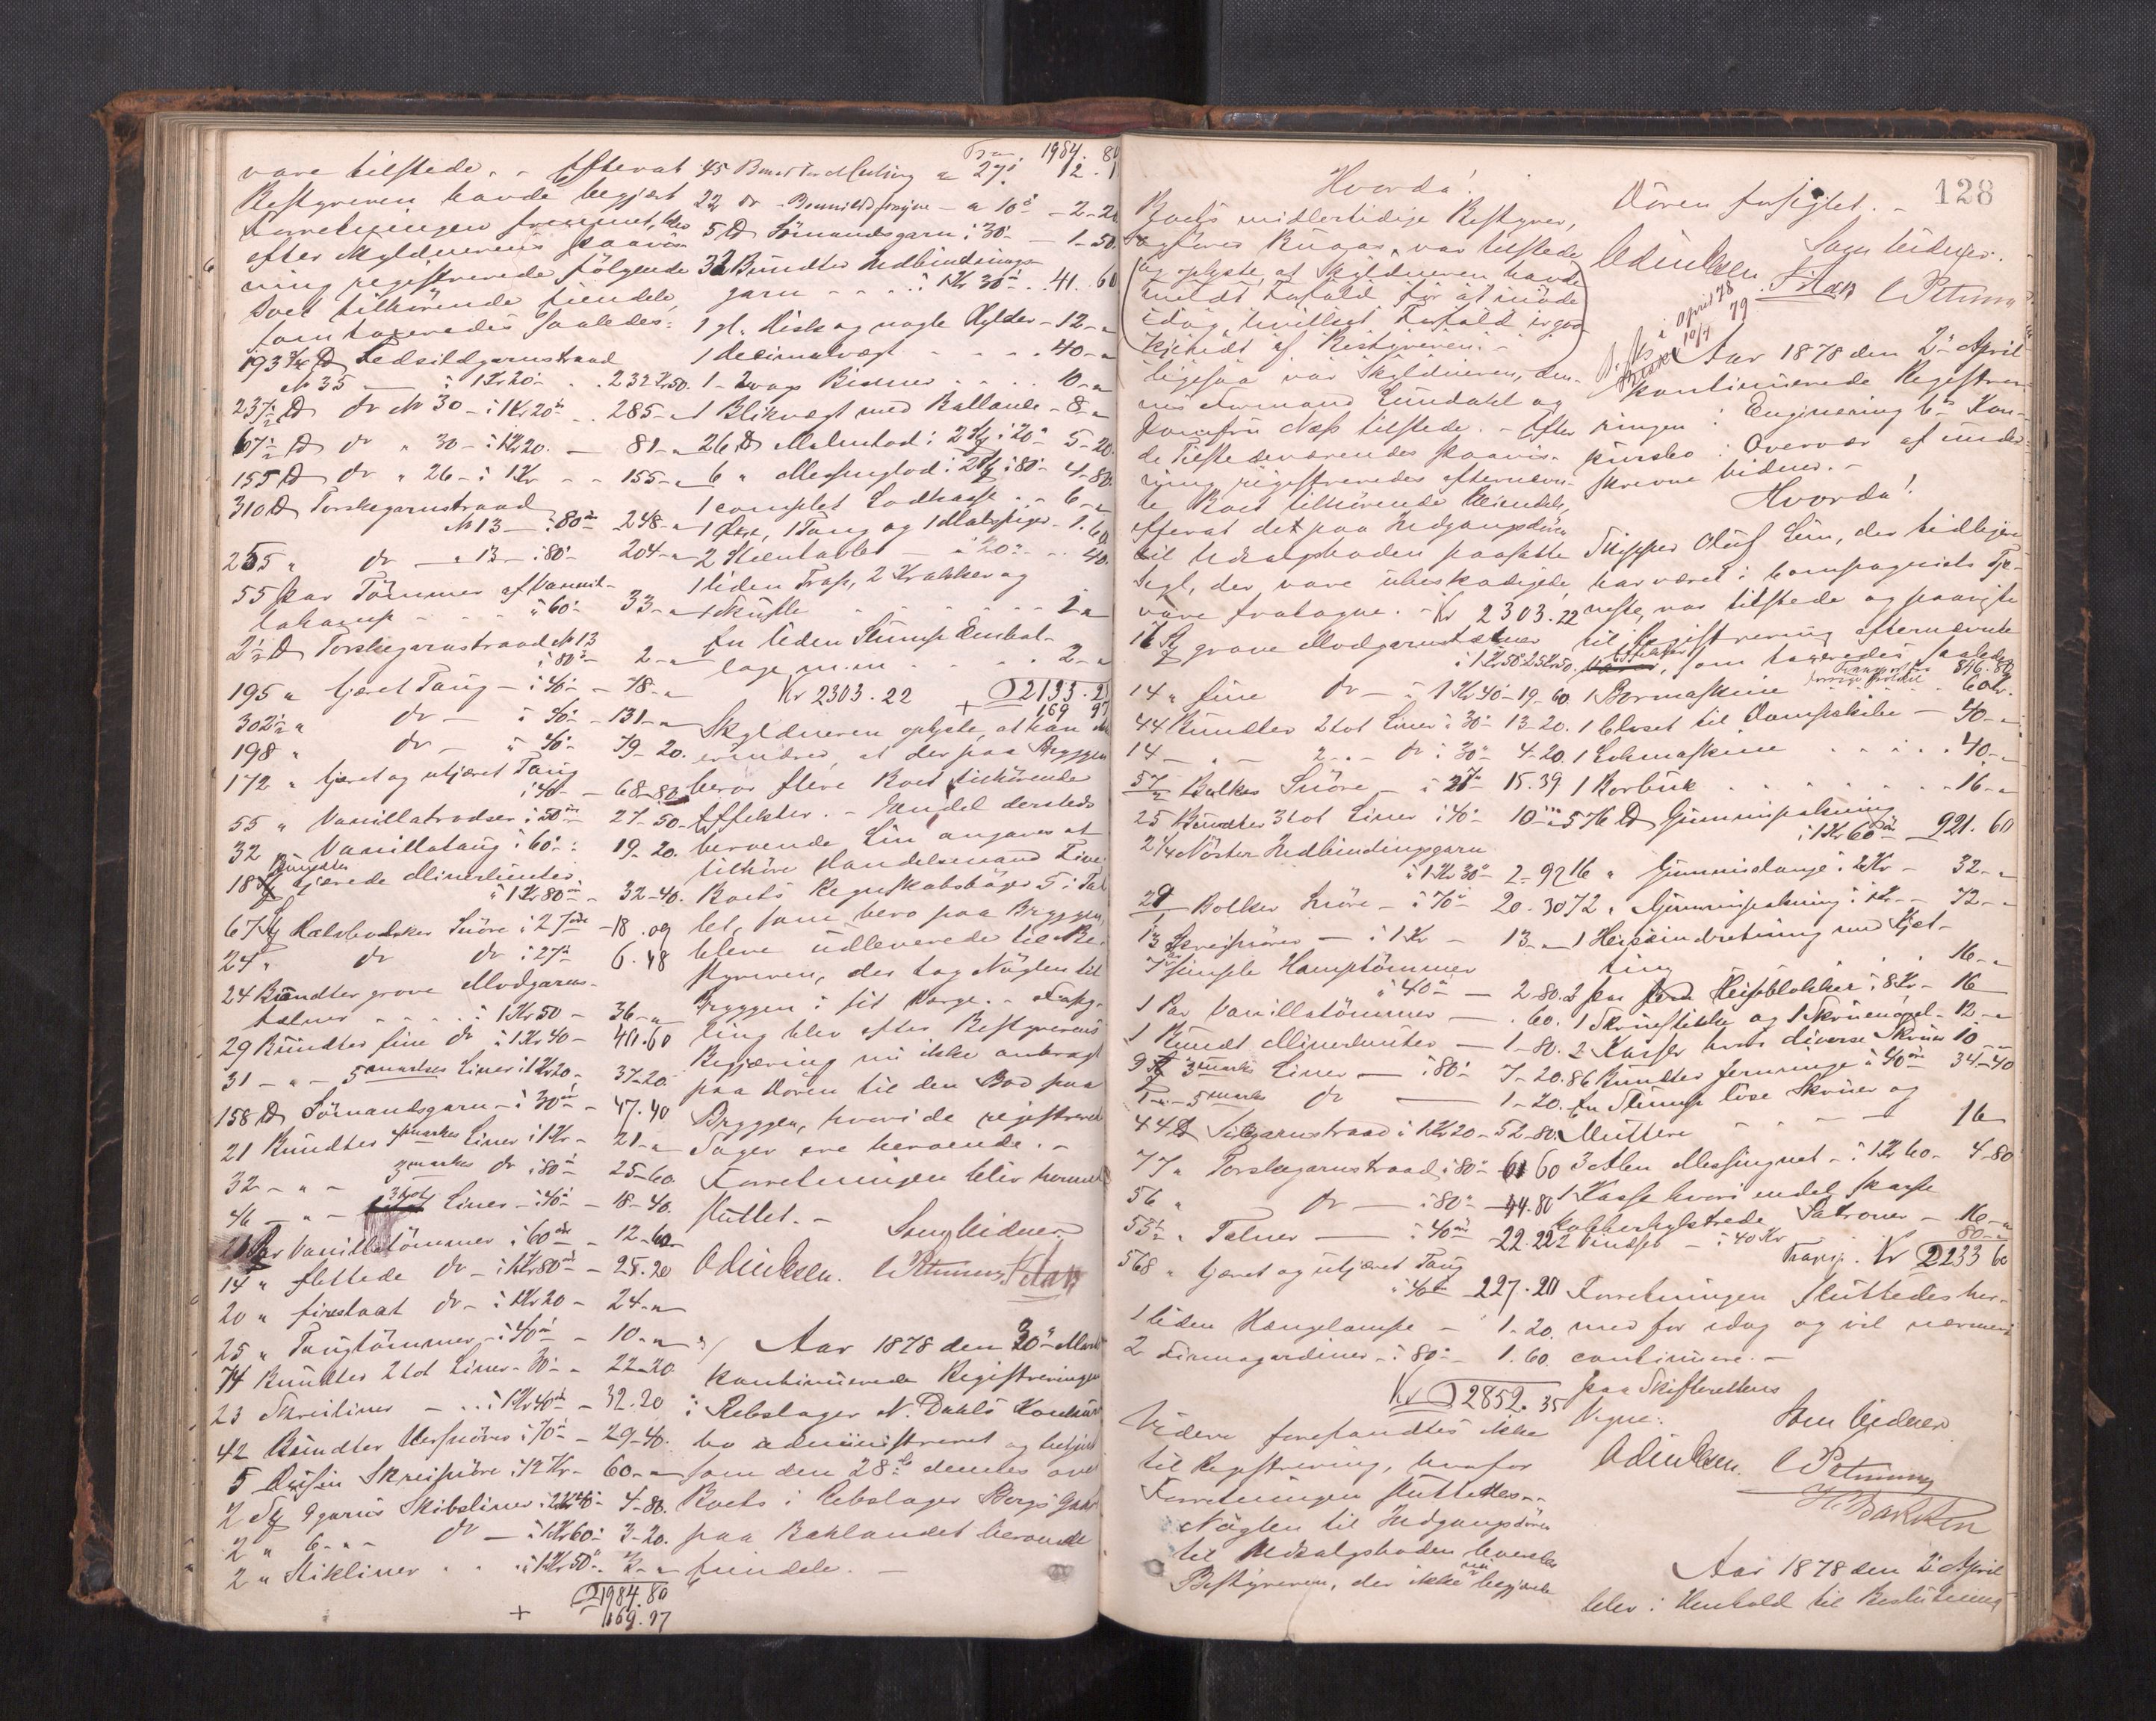 vare tilstede. - Efterat
Bestyreren havde begjæret
Forretningen fremmet, blev
efter Skyldnerens Paavis-
ning registrerede følgende
Boet tilhørende Eiendele,
som taxeredes saaledes:
193 ¾ ℔ Fedsildgarnstraad
№ 35 — à 1 Kr 20 - 232 Kr 50.
237 ½ ℔ do № 30 - à 1 Kr 20 - 285 - "
67 ½ ℔ do " 30 - à 1 Kr 20. — 81 - "
155 ℔ do " 26 - à 1 Kr - - 155 - "
310 ℔ Torskegarnstraad
№ 13 — à 80 - 248 - "
255 " do — " 13 - à 80 - 204 - "
55 Par Tømmer af Vannil-
lahamp - - - à 60 - 33 - "
2 ½ ℔ Torskegarnstraad № 13
à 80 - 2 - "
195 " tjæret Toug - à 40 - 78 - "
302 ½ " do - à 40 - 131 - "
198 " do - à 40 - 79 - 20.
172 " tjæret og utjæret Toug
à 40 - 68 - 80
55 " Vanillatrodser à 50 - 27 - 50
32 Vanillatoug à 60 - 19 - 20.
18 Bundter tjærede Merlinter
à 1 Kr 80 - 32 - 40.
67 Snøre à 27 - 18. 09
24 " do do à 27 - 6. 48
24 Bundter grove Modgarns-
tælner - - - à 1 Kr 50 - 36 - "
29 Bundter fine do à 1 Kr 40 - 40. 60
31 - " - 5 markes Liner à 1 Kr 20 - 37 - 20
158 ℔ Sømandsgarn - à 30 - 47. 40
21 Bundter 4 markes Liner à 1 Kr - 21 - "
32 - " - 3 markes do à 80 - 25 - 60.
46 - " - 3 lot Liner - à 40 - 18 - 40.
21 Par Vanillatømmer à 60 - 12 - 60
14 " flettede do - à 1 Kr 80 - 25. 20
20 " fireslaat do - à 1 Kr 20 - 24 - "
25 " Tougtømmer - à 40 - 10 - "
74 Bundter 2 lot Liner - 30 - 22 - 20
23 Skreiliner - - à 1 Kr 40 - 32. 20
42 Bundter à 70 - 29 - 40.
5 Dusin Skreisnøre à 12 Kr - 60 - "
2 9 garns Skibsliner à 2 Kr 40 - 4 - 80.
2 " 6 - " - do — à 1 Kr 60 - 3 - 20.
2 " Stikliner - - à 1 Kr 50 -
1984. 80
+ 169. 97
1984. 80
45 à 27
22 do - - à 10 - 2 - 20
5 ℔ Sømandsgarn à 30 - 1 - 50.
32 Bundter Indbindings-
garn - - - à 1 Kr 30 - 41. 60
1 gl. Disk og nogle Hylder - 12 - "
1 Decimalvægt - - - 40 - "
1 Bismer - - - 10 - "
1 Blikvægt med Ballance - 8 - "
26 ℔ à 20 5 - 20.
6 " Messinglod à 80 - 4 - 80.
1 complet Lodkasse - - 6 - "
1 Øxe, 1 Tang og 1. 60
2 - à 20 - - 40.
1 liden Trap, 2 Krakker og
1 Skuffe - - - - - 1 - "
En liden Slump Embal-
lage m. m - - - - 2 - "
Kr 2303. 22 + 2133. 25
169 97
Skyldneren oplyste, at han
erindrer, at der paa Bryggen
beror flere Boet tilhørende
Effekter. - Endel dersteds
beroende Lin angaves at
tilhøre Handelsmand
Boets Regnskabsbøger 5 i Tal-
let, som bero paa Bryggen,
bleve udleverede til Be-
styreren, der tog Nøglen til
Bryggen i sit Værge. - Forseg-
ling blev efter Bestyrerens
Begjæring nu ikke anbragt
paa Døren til den Bod paa
Bryggen, hvori de registrerede
Sager ere beroende. -
Forretningen blev hermed
sluttet. -
Som Vidner
Aar 1878 den 30 Marts
kontinuerede Registreringen
i Rebslager N. Dahls Konkurs-
bo administreret og betjent
som den 28de dennes over
Boets i Rebslager Bergs Gaard
paa Baklandet beroende
Eiendele. -
128
Hvorda!
Boets midlertidige Bestyrer,
Sagfører Buaas, var tilstede
og oplyste, at Skyldneren havde
meldt Forfald for at møde
idag, hvilket Forfald er god-
kjendt af Bestyreren. -
ligesaa var Skyldneren, den-
nes Formand Lundahl og
Jomfru Næss tilstede. - Efter
de Tilstedeværendes Paavis-
ning registreredes efternævn-
te Boet tilhørende Eiendele,
efterat det paa Indgangsdøren
til Udsalgsboden paasatte
Segl, der vare ubeskadigede,
vare fratagne. - Kr 2303. 22
16 grove Modgarnstælner
à 1 Kr 50 25 Kr 50.
14 " fine do - à 1 Kr 40 - 19 - 60
44 Bundter 2 lot Liner à 30 - 13 - 20.
14 - " - 2 - " - do à 30 - 4 - 20.
57 Snøre - à 27 15. 39
25 Bundter 3 lot Liner à 40 - 10 - "
2 ¼ Nøster Indbindingsgarn
à 1 Kr 30 - 2 - 92
29 Bolker Snøre - à 70 - 20. 30
13 Skreisnører - à 1 Kr - 13 - "
7 simple Hamptømmer
à 40 — 2 - 80.
1 Par Vanillatømmer — . 60.
1 Bundt Merlinter — 1 - 80.
9 3 marks Liner — à 80 - 7 - 20.
1 - " - 5 marks do — 1 - 20.
44 ℔ Sildgarnstraad à 1 Kr 20 - 52 - 80.
77 " Torskegarnstraad à 80 - 61 60
56 " do — à 80 - 44. 80
53 ½ " Telner — à 40 - 22. 22
568 " tjæret og utjæret Toug
à 40 227. 20
1 liden Hængelampe - 1 - 20.
2 Firmagardiner - à 80 - 1. 60.
Kr 2852. 35
Videre forefandtes ikke
til Registrering, hvorfor
Forretningen sluttedes. -
Nøglen til Indgangsdøren
til Udsalgsboden leveredes
Bestyreren, der ikke nu begjærede
Døren forseglet. -
Som Vidner.
Aar 1878 den 2 April
kontinuerede Registrer-
ingen i Enginering Co Kon-
kursbo i Overvær af under-
skrevne Vidner. -
Hvorda!
Skipper Oluf Lun, der tidligere
har været i Kompagniets Tje-
neste, var tilstede og paaviste
til Registrering efternævnte
Effekter, som taxeredes saaledes
896. 80
1 Bormaskine - - - 60 Kr.
1 Closet til Dampskibe - 40 - "
1 Lokmaskine - - - 40 - "
1 Borbuk - - - 16 - "
576 ℔ Gummipakning
à 1 Kr 60 921. 60
16 " Gummislange à 2 Kr - 32 - "
72 " Gummipakning à 1 Kr - 72 - "
1 Heiseindretning med Kjet-
ting - - - 16 - "
2 par Heiseblokker à 8 Kr - 16
1 Skruestikke og 1 Skruenøgel - 12 - "
2 Kasser hvori diverse Skruer 10 - "
86 Bundter Jernringe à 40 34 - 40
En Slump løse Skruer og
Muttere - - - 16
3 Alen Messingnet - à 1 Kr 60 - 4 - 80
1 Kasse hvori endel skarpe
Kobberhylstrede Patroner - 16 - "
2 Vindspil - à 40 Kr 80 - "
Transp. Kr 2233 60
Forretningen sluttedes her-
med for idag og vil nærmere
continuere. -
paa Skifterettens
Vegne:
Som Vidner
Aar 1878 den 2 April
blev i Henhold til Beslutning